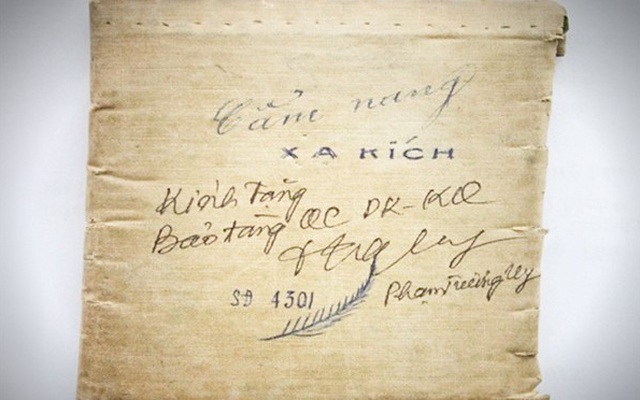 Cẩm nang
XẠ KÍCH
Kính tặng
Bảo tàng QC PK-KQ
SĐ 4301
Phạm Trường Uy